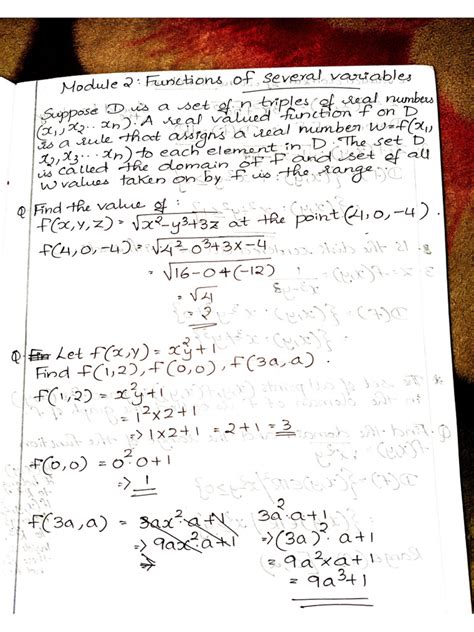 Module 2: Functions of several variables
Suppose D is a set of n triples of real numbers
(x₁, x₂ ... xₙ). A real valued function f on D
is a rule that assigns a real number w = f(x₁,
x₂, x₃ ... xₙ) to each element in D. The set D
is called the domain of f and set of all
w values taken on by f is the range.
Q Find the value of :
f(x, y, z) = √x²-y³+3z at the point (4, 0, -4).
f(4, 0, -4) = √4²-0³+3x-4
= √16-0+(-12)
= √4
= 2
Q. Let f(x, y) = x²y+1
Find f(1, 2), f(0, 0), f(3a, a).
f(1, 2) = x²y+1
= 1²x2+1
=> 1x2+1 = 2+1 = 3
f(0, 0) = 0²·0+1
=> 1
f(3a, a) = 3ax²·a+1 3a²·a+1
=> 9ax²·a+1 => (3a)²·a+1
=> = 9a²xa+1
= 9a³+1